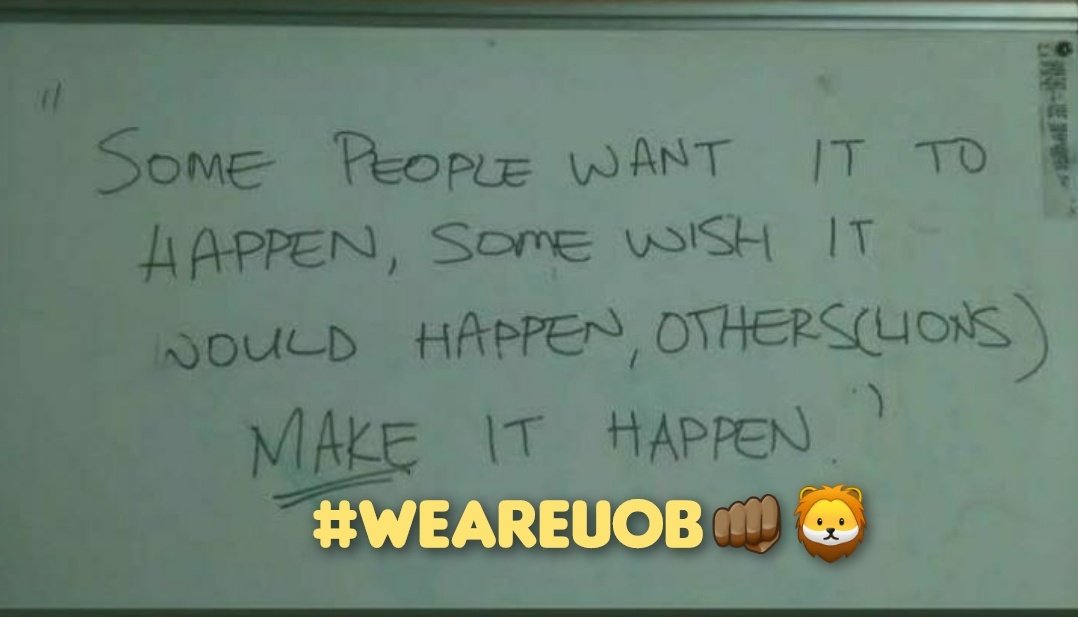 "SOME PEOPLE WANT IT TO
HAPPEN, SOME WISH IT
WOULD HAPPEN, OTHERS(LIONS)
MAKE IT HAPPEN."
#WEAREUOB👊🏾🦁